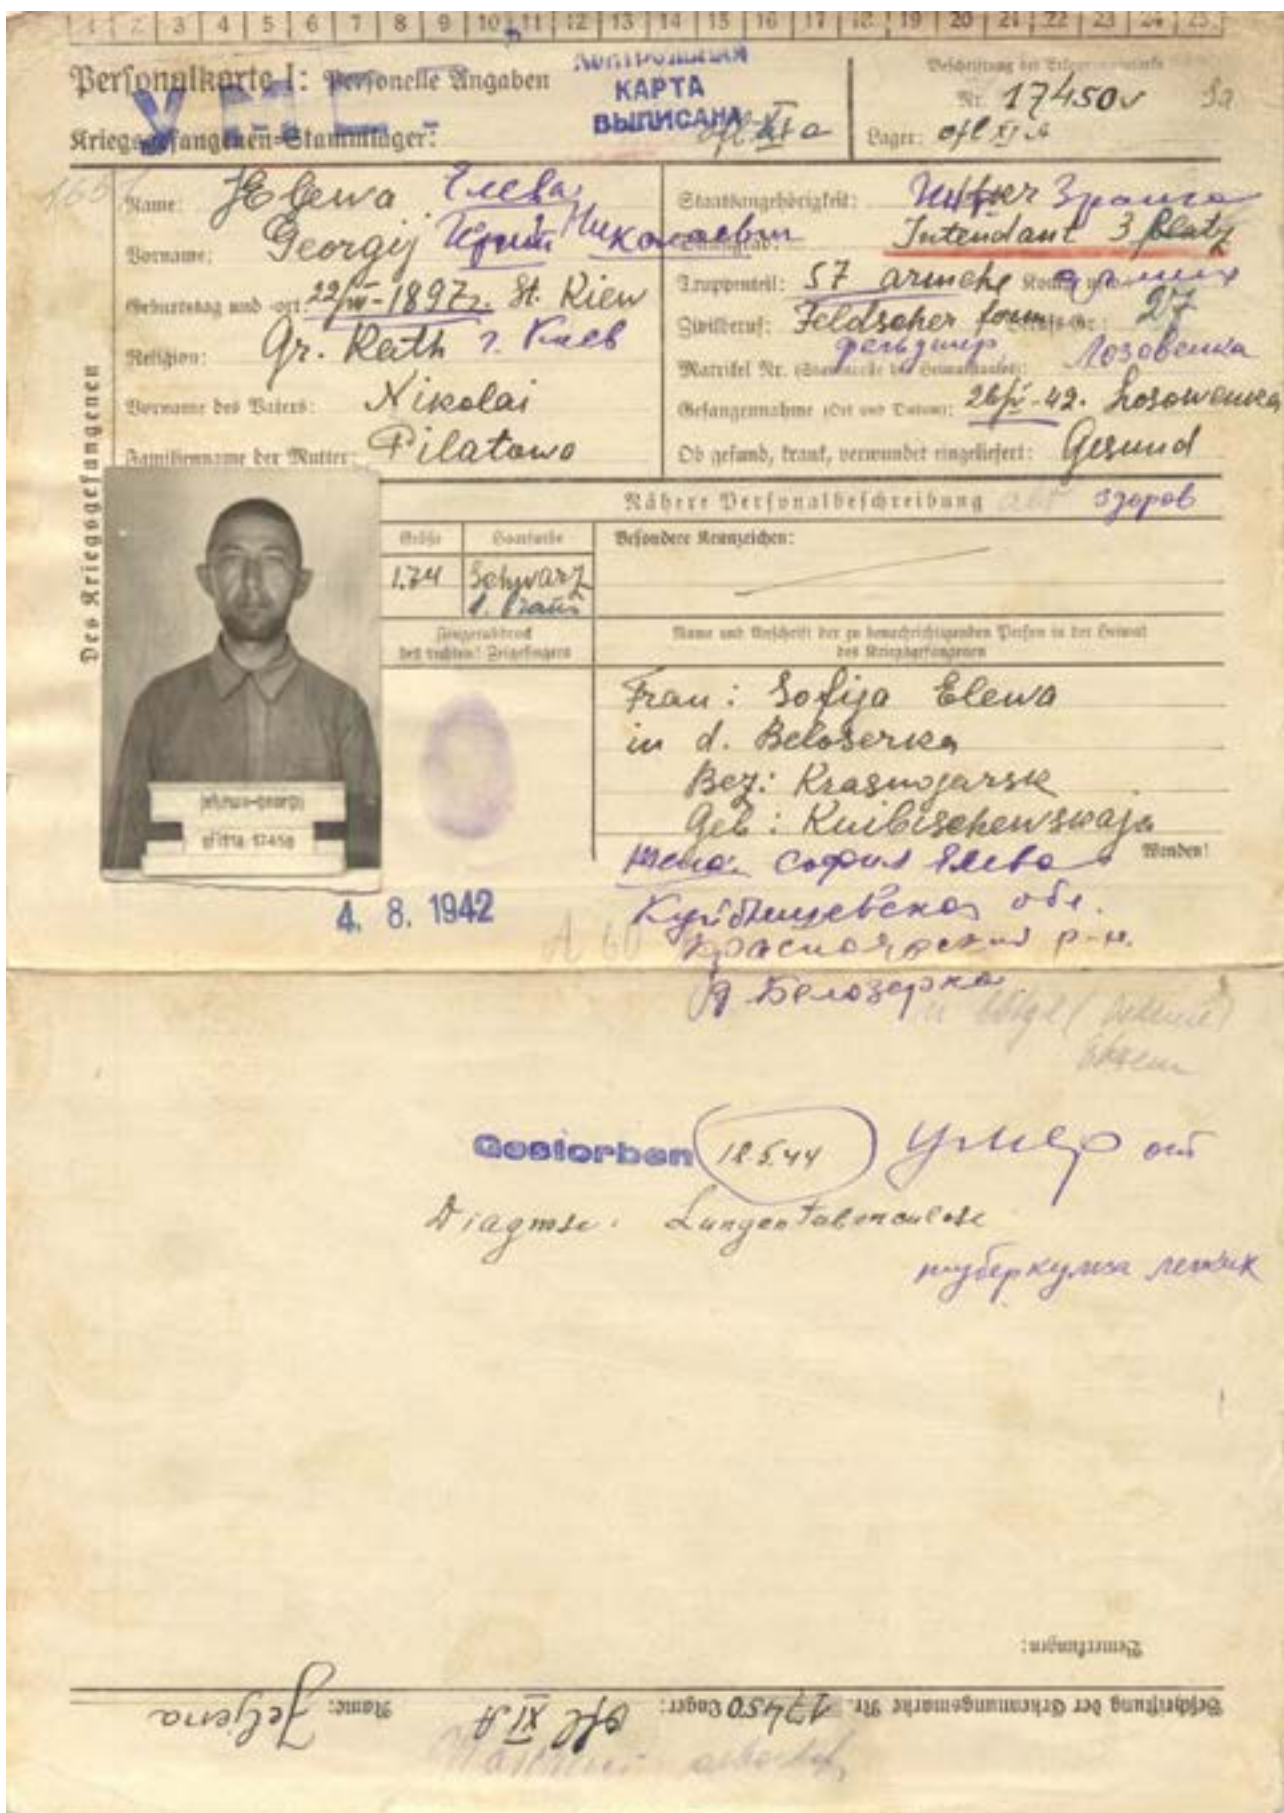 1 2 3 4 5 6 7 8 9 10 11 12 13 14 15 16 17 18 19 20 21 22 23 24 25
Personalkarte I: Personelle Angaben
Kriegsgefangenen-Stammlager:
КОНТРОЛЬНАЯ
КАРТА
ВЫПИСАНА
ofl XI a
Beschriftung der Erkennungsmarke
Nr. 17450
Lager: ofl XI A
Des Kriegsgefangenen
Name: Elewa Елева
Vorname: Georgij Николаевич
Geburtstag und -ort: 1897 St. Kiew
Religion: Gr. Kath г. Киев
Vorname des Vaters: Nikolai
Familienname der Mutter: Pilatowa
Staatsangehörigkeit: 3 ранга
Intendant 3
Truppenteil: 57 armehe
Zivilberuf: Feldscher 27
фельдшер Лозовенка
Matrikel Nr.
Gefangennahme (Ort und Datum): 42. Losowenka
Ob gesund, krank, verwundet eingeliefert: Gesund
Nähere Personalbeschreibung здоров
Größe Haarfarbe Besondere Kennzeichen:
1.74 Schwarz
Fingerabdruck
des rechten! Zeigefingers
Name und Anschrift der zu benachrichtigenden Person in der Heimat
des Kriegsgefangenen
Frau: Sofija Elewa
in d. Beloserka
Bez: Krasnojarsk
Geb: Kuibischewskaja
Wenden!
Жена София Елева
Куйбышевская обл.
Красноярский р-н.
д. Белозерка
4. 8. 1942
Gestorben 18.5.44 Умер от
Diagnose: Lungentuberculose
туберкулеза легких
Bemerkungen:
Beschriftung der Erkennungsmarke Nr. 17450 Lager: ofl XI A Name: Jeljena